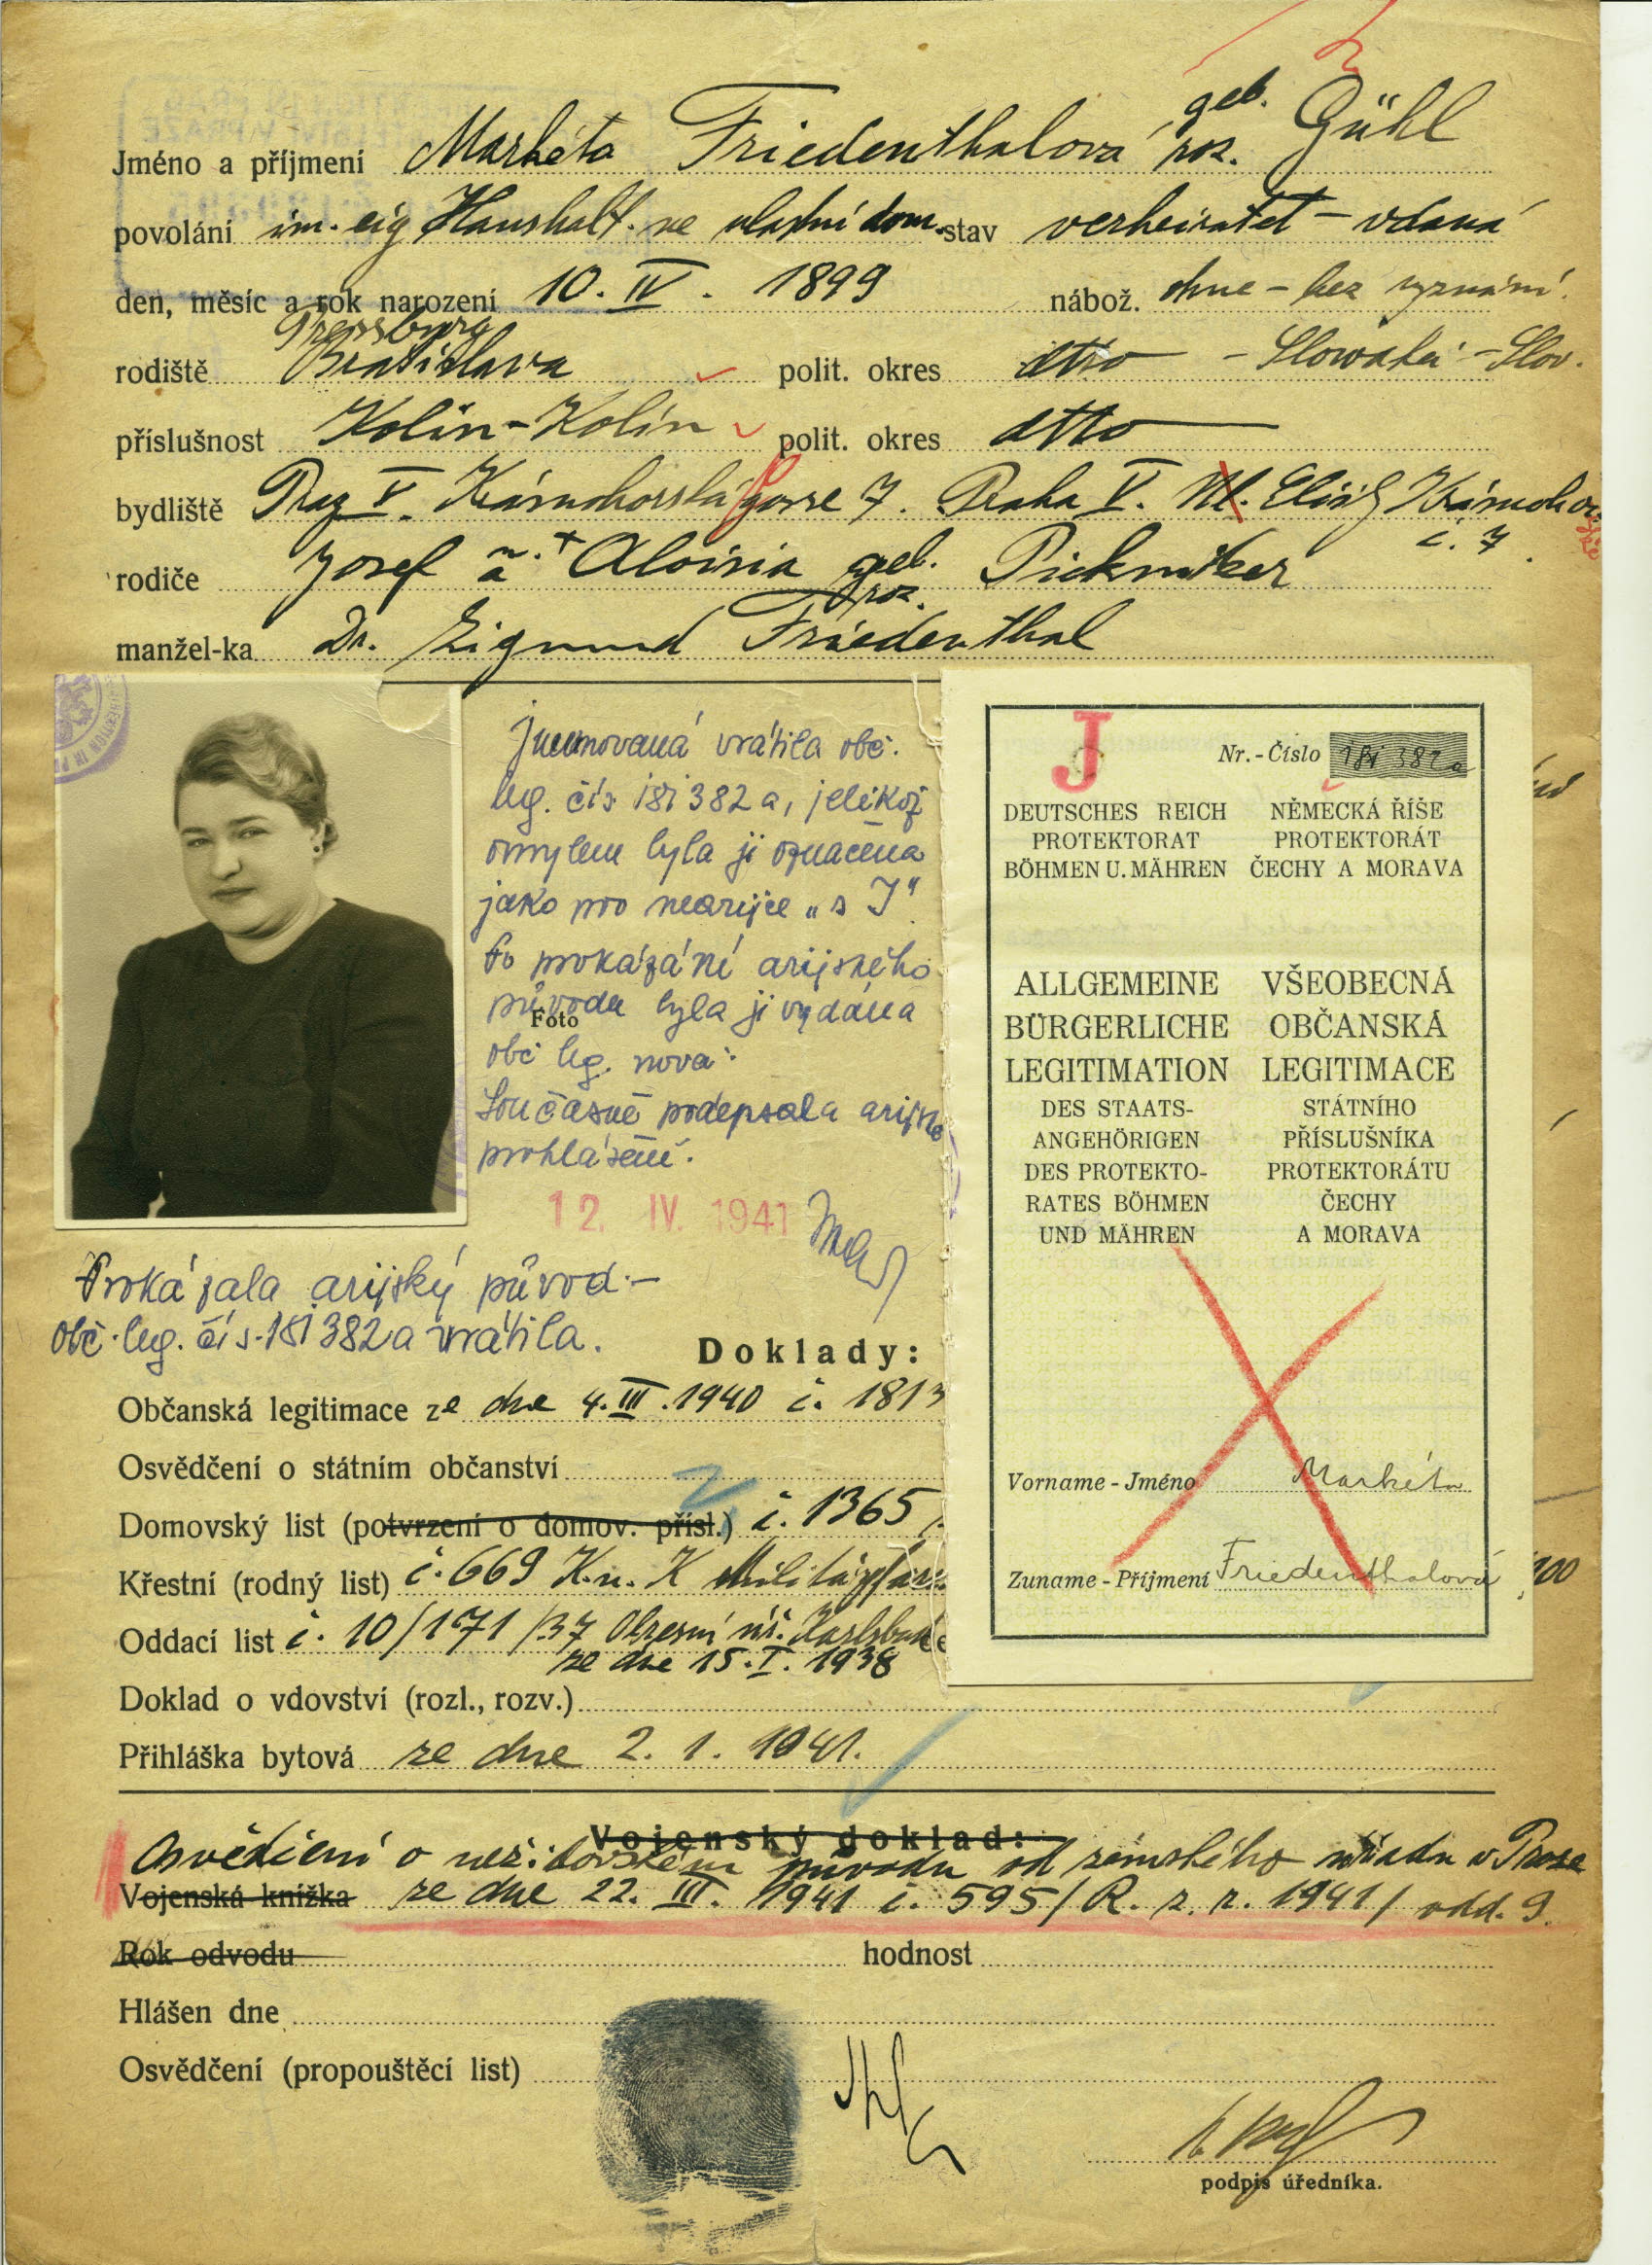 Jméno a příjmení Markéta Friedenthalová geb. roz. Gühl
povolání im. eig Haushalt. ve vlastní dom. stav verheiratet – vdaná
den, měsíc a rok narození 10. IV. 1899 nábož. ohne – bez vyznání.
Pressburg
rodiště Bratislava polit. okres dtto – Slowakei – Slov.
příslušnost Kolin – Kolín polit. okres dtto
bydliště Prag V. gasse 7. Praha V. č. 7.
rodiče Josef a Aloisia geb. roz.
manžel-ka Dr. Sigmund Friedenthal
Jmenovaná vrátila obč.
leg. čís 181382a, jelikož
omylem byla jí označena
jako pro nearijce „s J“.
Po prokázání arijského
původu byla jí vydána
Foto
obč leg. nová.
Současně podepsala arijské
prohlášení.
12. IV. 1941
Prokázala arijský původ.–
Obč. leg. čís. 181382a vrátila.
J
Nr. - Číslo 181 382 a
DEUTSCHES REICH NĚMECKÁ ŘÍŠE
PROTEKTORAT PROTEKTORÁT
BÖHMEN U. MÄHREN ČECHY A MORAVA
ALLGEMEINE VŠEOBECNÁ
BÜRGERLICHE OBČANSKÁ
LEGITIMATION LEGITIMACE
DES STAATS- STÁTNÍHO
ANGEHÖRIGEN PŘÍSLUŠNÍKA
DES PROTEKTO- PROTEKTORÁTU
RATES BÖHMEN ČECHY
UND MÄHREN A MORAVA
Vorname - Jméno Markéta
Zuname - Příjmení Friedenthalová
Doklady:
Občanská legitimace ze dne 4. III. 1940 č. 1813
Osvědčení o státním občanství
Domovský list (potvrzení o domov. přísl.) č. 1365
Křestní (rodný list) č. 669 K. u. K
Oddací list č. 10/171/37 Okresní úř. Karlsbad
ze dne 15. I. 1938
Doklad o vdovství (rozl., rozv.)
Přihláška bytová ze dne 2. 1. 1941.
Vojenský doklad:
Osvědčení o nežidovském původu od zemského úřadu v Praze
Vojenská knížka ze dne 22. III. 1941 č. 595/R. z. r. 1941/ odd. 9.
Rok odvodu hodnost
Hlášen dne
Osvědčení (propouštěcí list)
podpis úředníka.